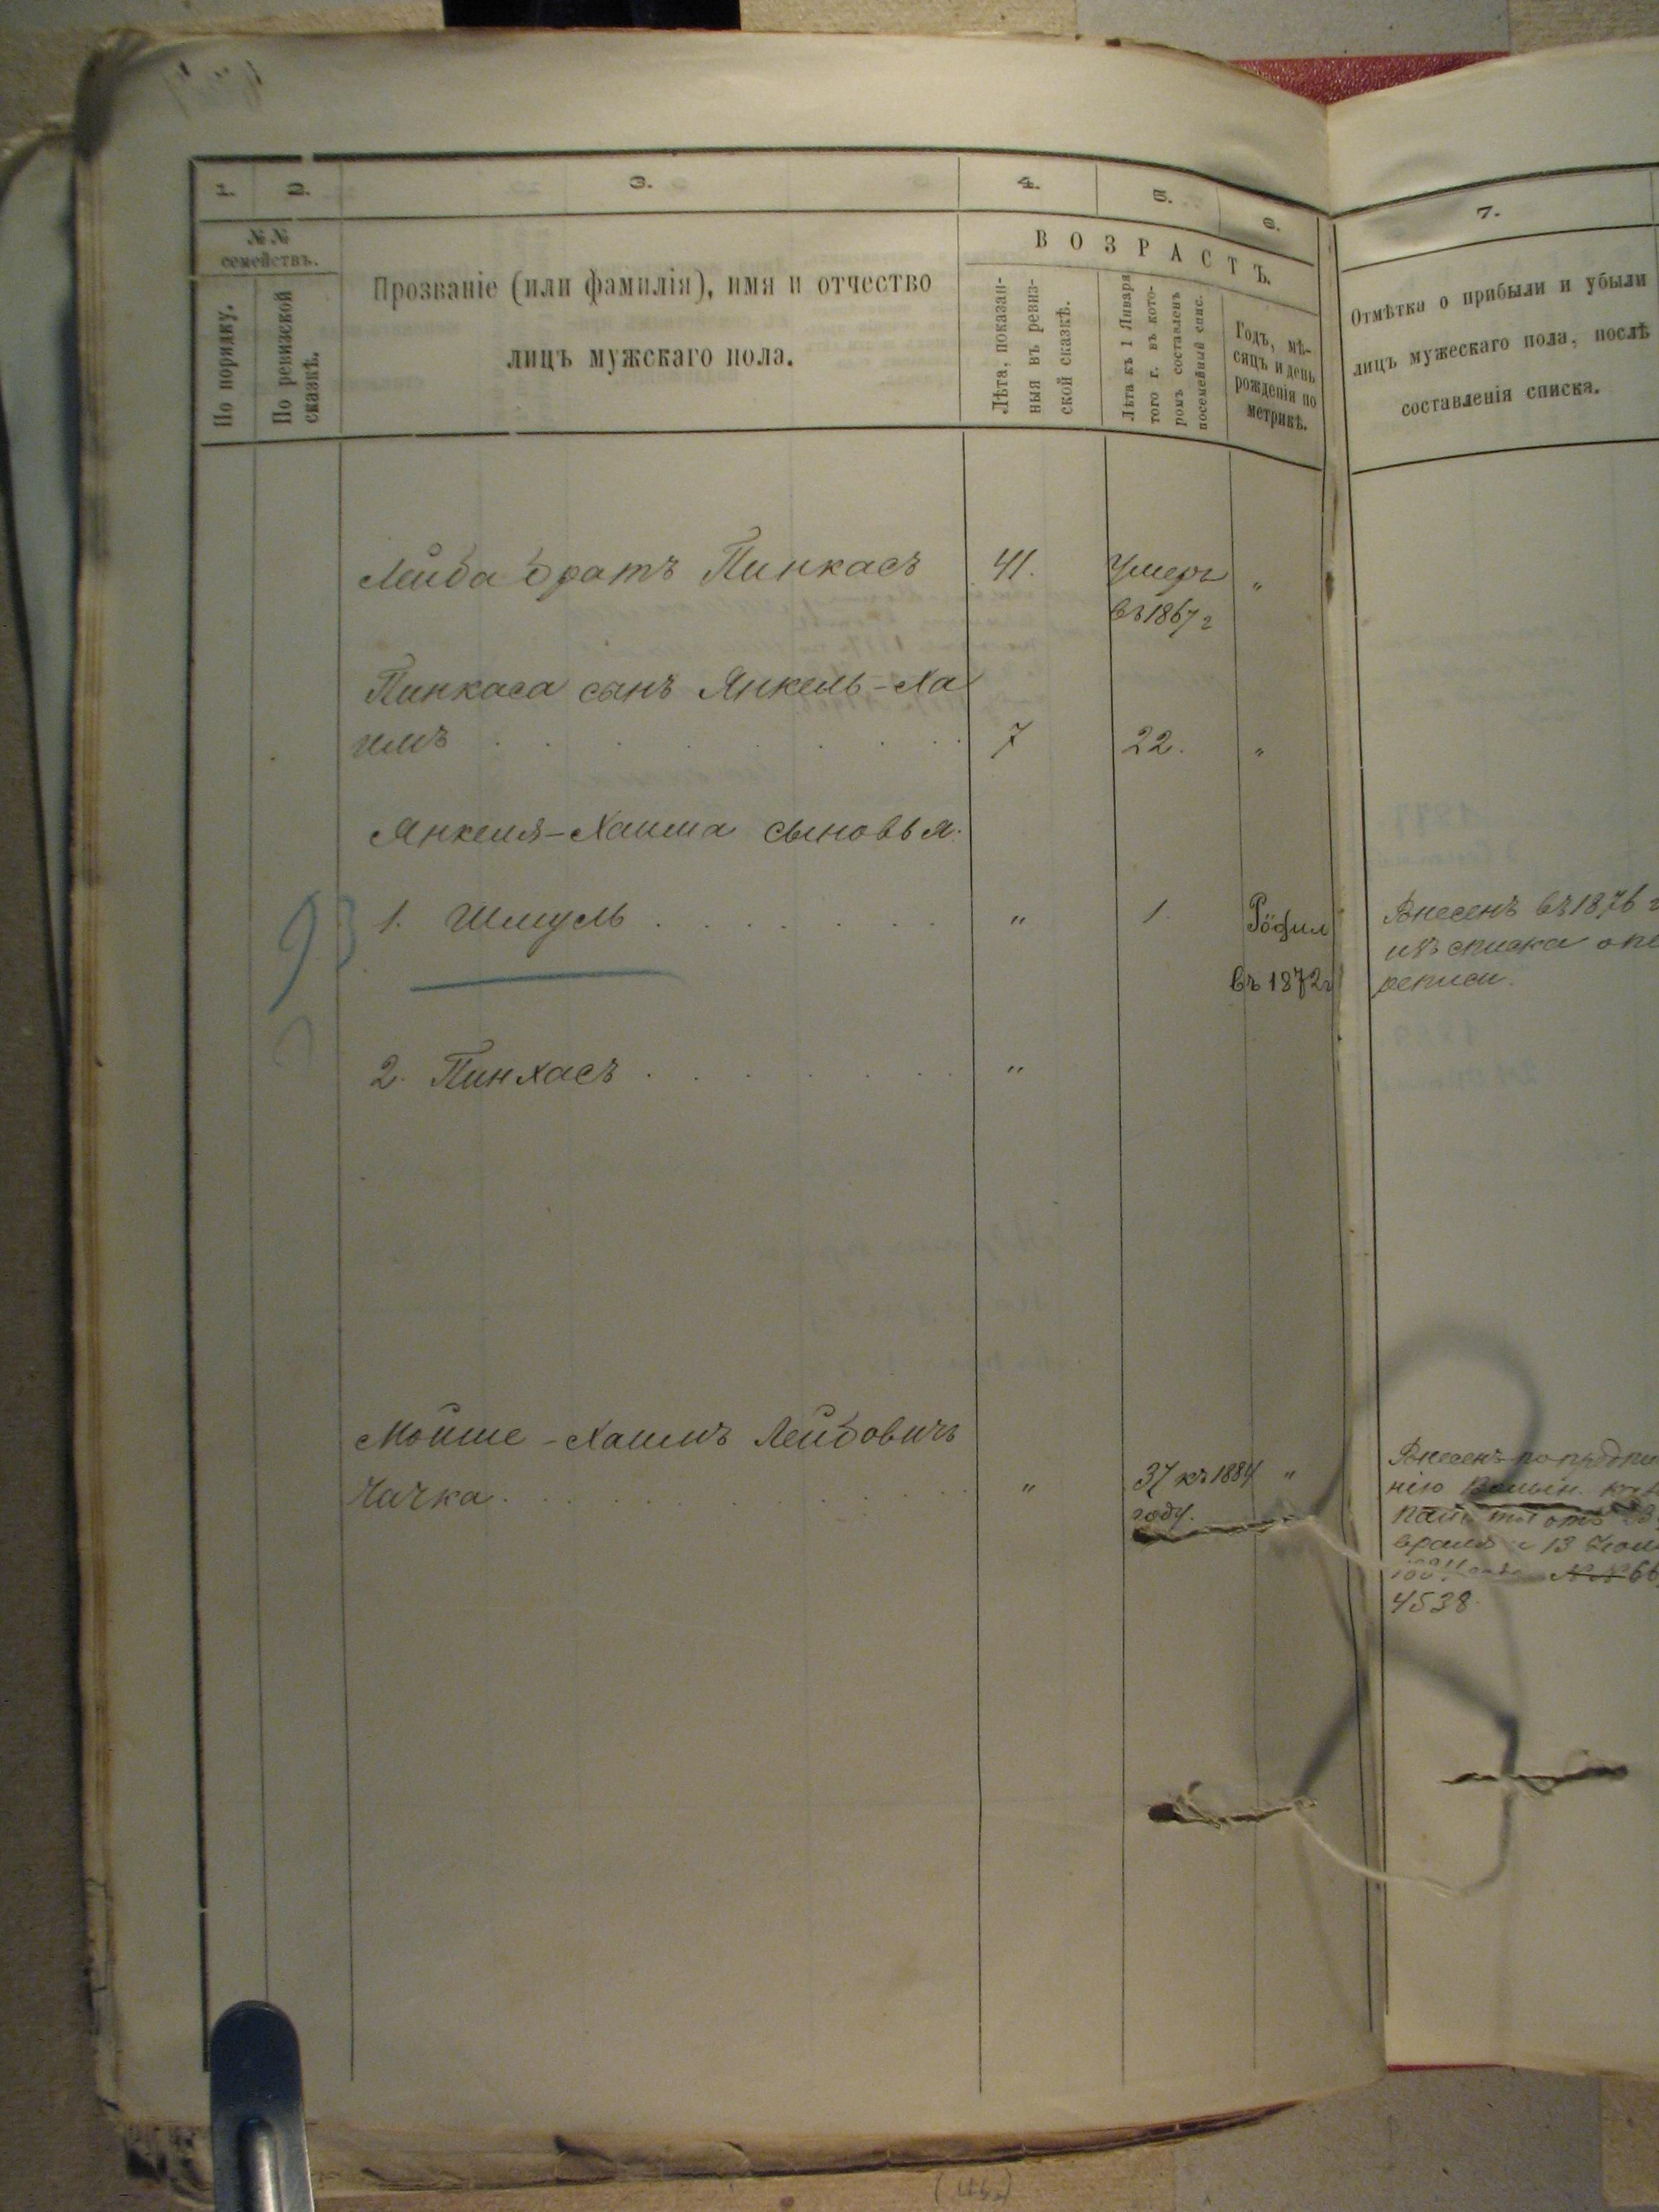 1. 2. 3. 4. 5. 6. 7.
№ №
семействъ.
По порядку.
По ревизской
сказкѣ.
Прозваніе (или фамилія), имя и отчество
лицъ мужскаго пола.
ВОЗРАСТЪ.
Лѣта, показан-
ныя въ ревиз-
ской сказкѣ.
Лѣта къ 1 Января
того г. въ кото-
ромъ составленъ
посемейный спис.
Годъ, мѣ-
сяцъ и день
рожденія по
метрикѣ.
Отмѣтка о прибыли и убыли
лицъ мужескаго пола, послѣ
составленія списка.
Лейба братъ Пинкасъ 41. Умеръ „
въ 1867 г
Пинкаса сынъ Янкель-Ха
имъ . . . . . . . . . 7 22. „
Янкеля-Хаима сыновья.
93
1. Шмуль . . . . . . . „ 1.
въ 1872г
Внесенъ въ 1876 г
изъ списка о пе
реписи.
2. Пинхасъ . . . . . . . „
Мойше-Хаимъ Лейбовичъ
Чачка . . . . . . . . . . „ 37 къ 1884 „
году.
Внесенъ по предпи
нію
13
4538.